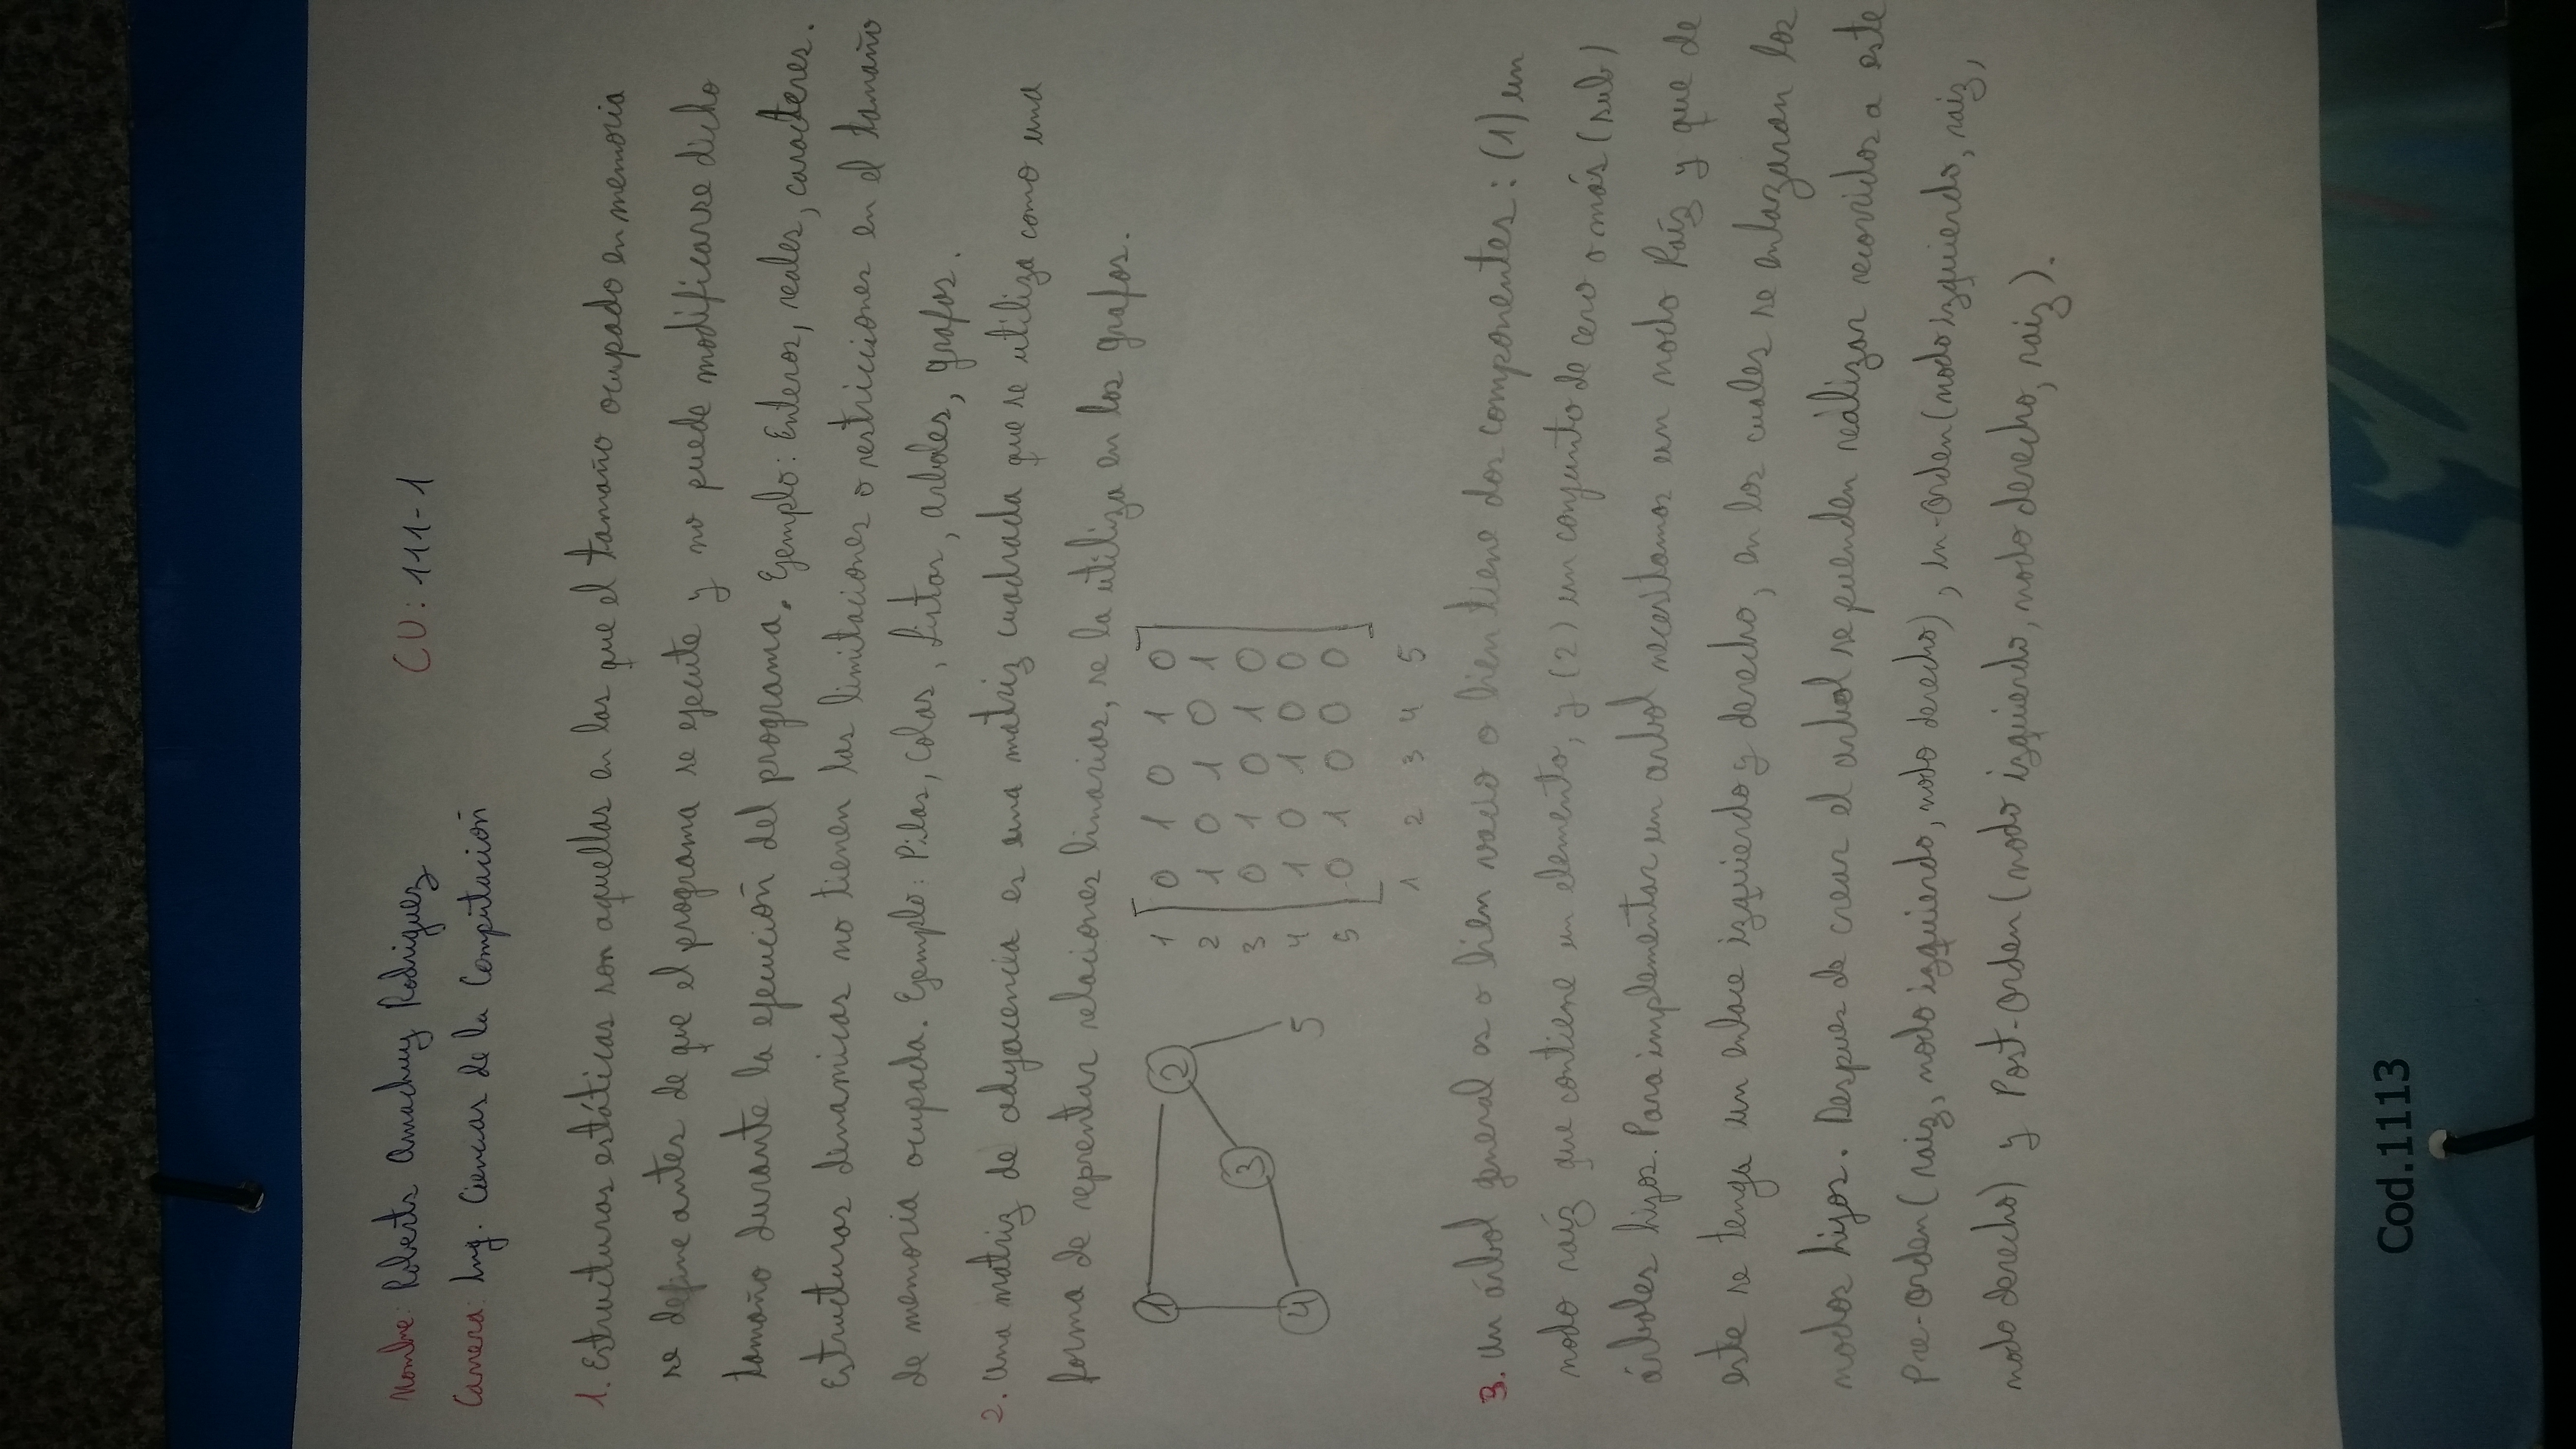 Nombre: Roberto Amachuy Rodriguez CU: 111-1
Carrera: Ing. Ciencias de la Computación
1. Estructuras estáticas son aquellas en las que el tamaño ocupado en memoria
se define antes de que el programa se ejecute y no puede modificarse dicho
tamaño durante la ejecución del programa. Ejemplo: Enteros, reales, caracteres.
Estructuras dinamicas no tienen las limitaciones o restricciones en el tamaño
de memoria ocupada. Ejemplo: Pilas, Colas, Listas, arboles, grafos.
2. Una matriz de adyacencia es una matriz cuadrada que se utiliza como una
forma de reprentar relaciones binarias, se la utiliza en los grafos.
1 2 3 4 5
1 0 1 0 1 0
2 1 0 1 0 1
3 0 1 0 1 0
4 1 0 1 0 0
5 0 1 0 0 0
1 2 3 4 5
3. Un árbol general es o bien vacio o bien tiene dos componentes: (1) un
nodo raíz que contiene un elemento, y (2) un conjunto de cero o más (sub)
árboles hijos. Para implementar un arbol necesitamos un nodo Raíz y que de
este se tenga un enlace izquierdo y derecho, en los cuales se enlazaran los
nodos hijos. Despues de crear el arbol se puenden reálizar recorridos a este
Pre-Orden (raiz, nodo izquierdo, nodo derecho), in-Orden (nodo izquierdo, raiz,
nodo derecho) y Post-Orden (nodo izquierdo, nodo derecho, raiz).
Cod.1113